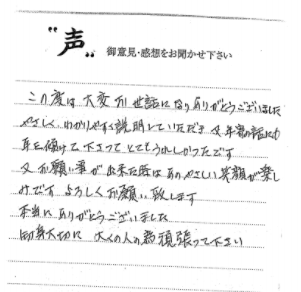 "声"
御意見・感想をお聞かせ下さい
この度は大変お世話になりありがとうございました
やさしく、わかりやすく説明していただき 又年寄の話にも
耳を傾けて下さってとてもうれしかったです
又お願い事が出来た時はあのやさしい笑顔が楽し
みです よろしくお願い致します
本当にありがとうございました
御身大切に 大くの人の為頑張って下さい